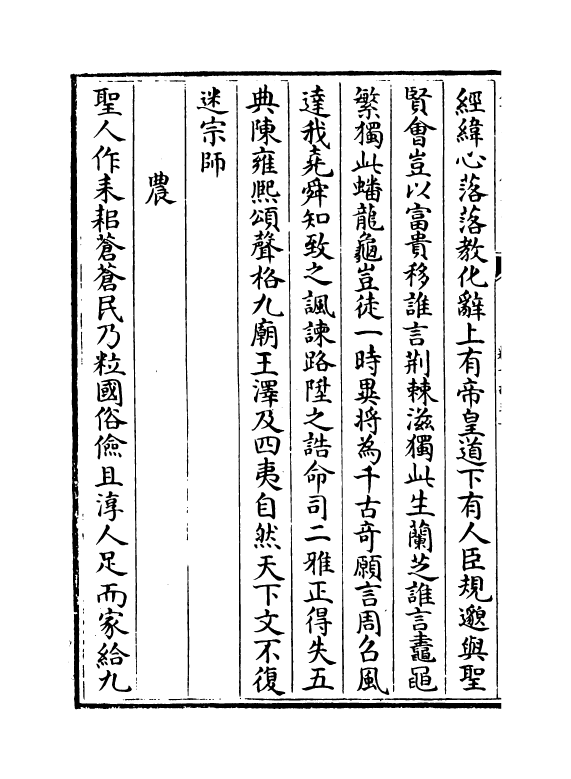 經緯心落落教化辭上有帝皇道下有人臣規邈與聖
賢會豈以富貴移誰言荆棘滋獨此生蘭芝誰言鼃黽
繁獨此蟠龍龜豈徒一時異将為千古奇願言周召風
達我堯舜知致之諷諫路陞之誥命司二雅正得失五
典陳雍熈頌聲格九廟王澤及四夷自然天下文不復
迷宗師
農
聖人作耒耜蒼蒼民乃粒國俗儉且淳人足而家給九